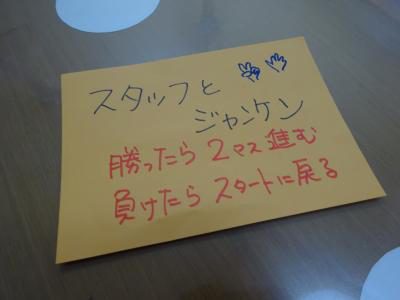 スタッフと
ジャンケン
勝ったら2マス進む
負けたらスタートに戻る